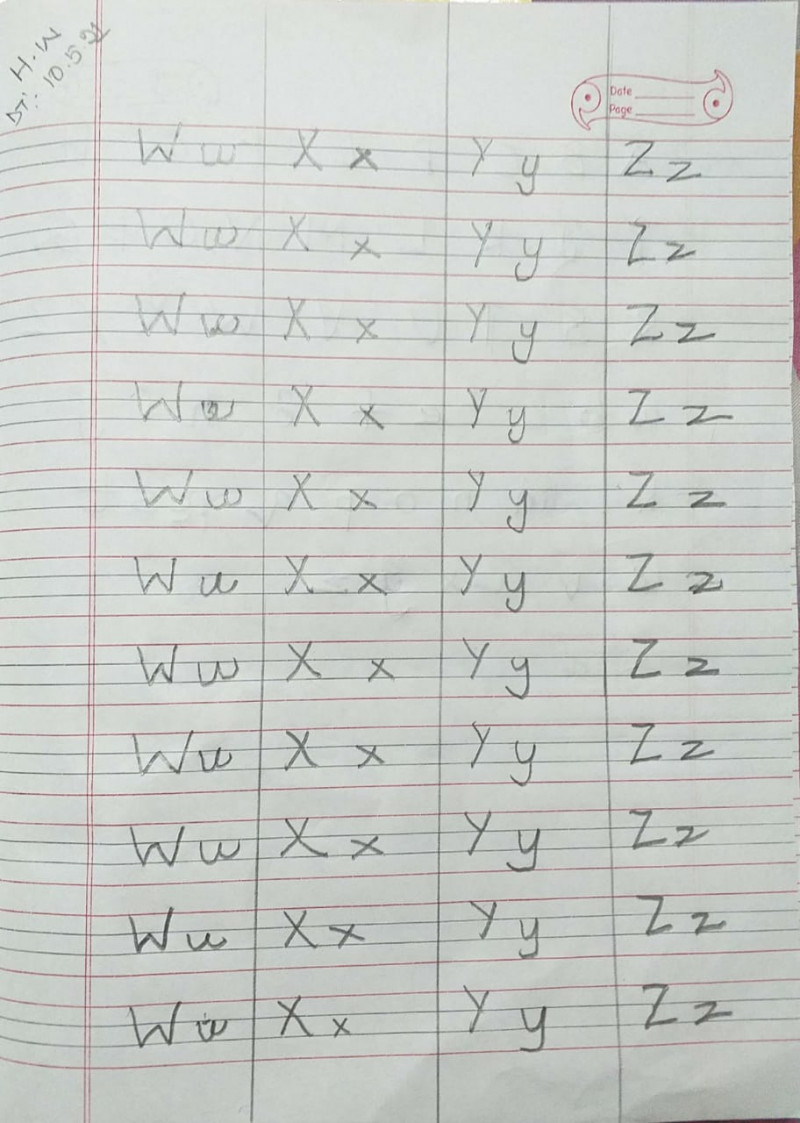 H.W
DT: 10.5.21
Date
Page
Ww Xx Yy Zz
Ww Xx Yy Zz
Ww Xx Yy Zz
Ww Xx Yy Zz
Ww Xx Yy Zz
Ww Xx Yy Zz
Ww Xx Yy Zz
Ww Xx Yy Zz
Ww Xx Yy Zz
Ww Xx Yy Zz
Ww Xx Yy Zz